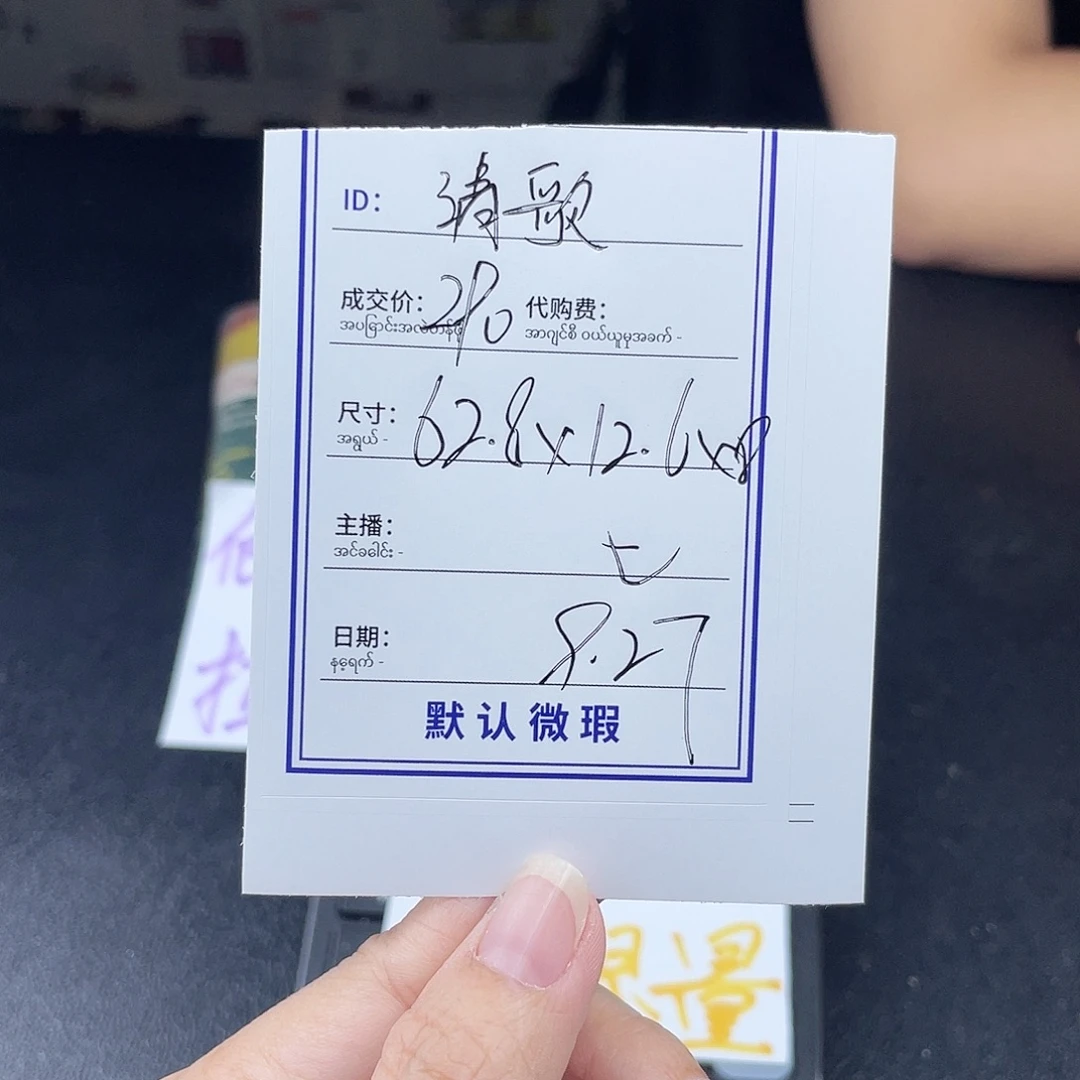 ID: 清歌
成交价: 290 代购费:
အပြောင်းအလဲတန်ဖိုး အာဂျင်စီ ဝယ်ယူမှုအခက် -
尺寸: 62.8x12.6x8
အရွယ် -
主播: 七
အင်ခေါင်း -
日期: 8.27
နေ့ရက် -
默认微瑕